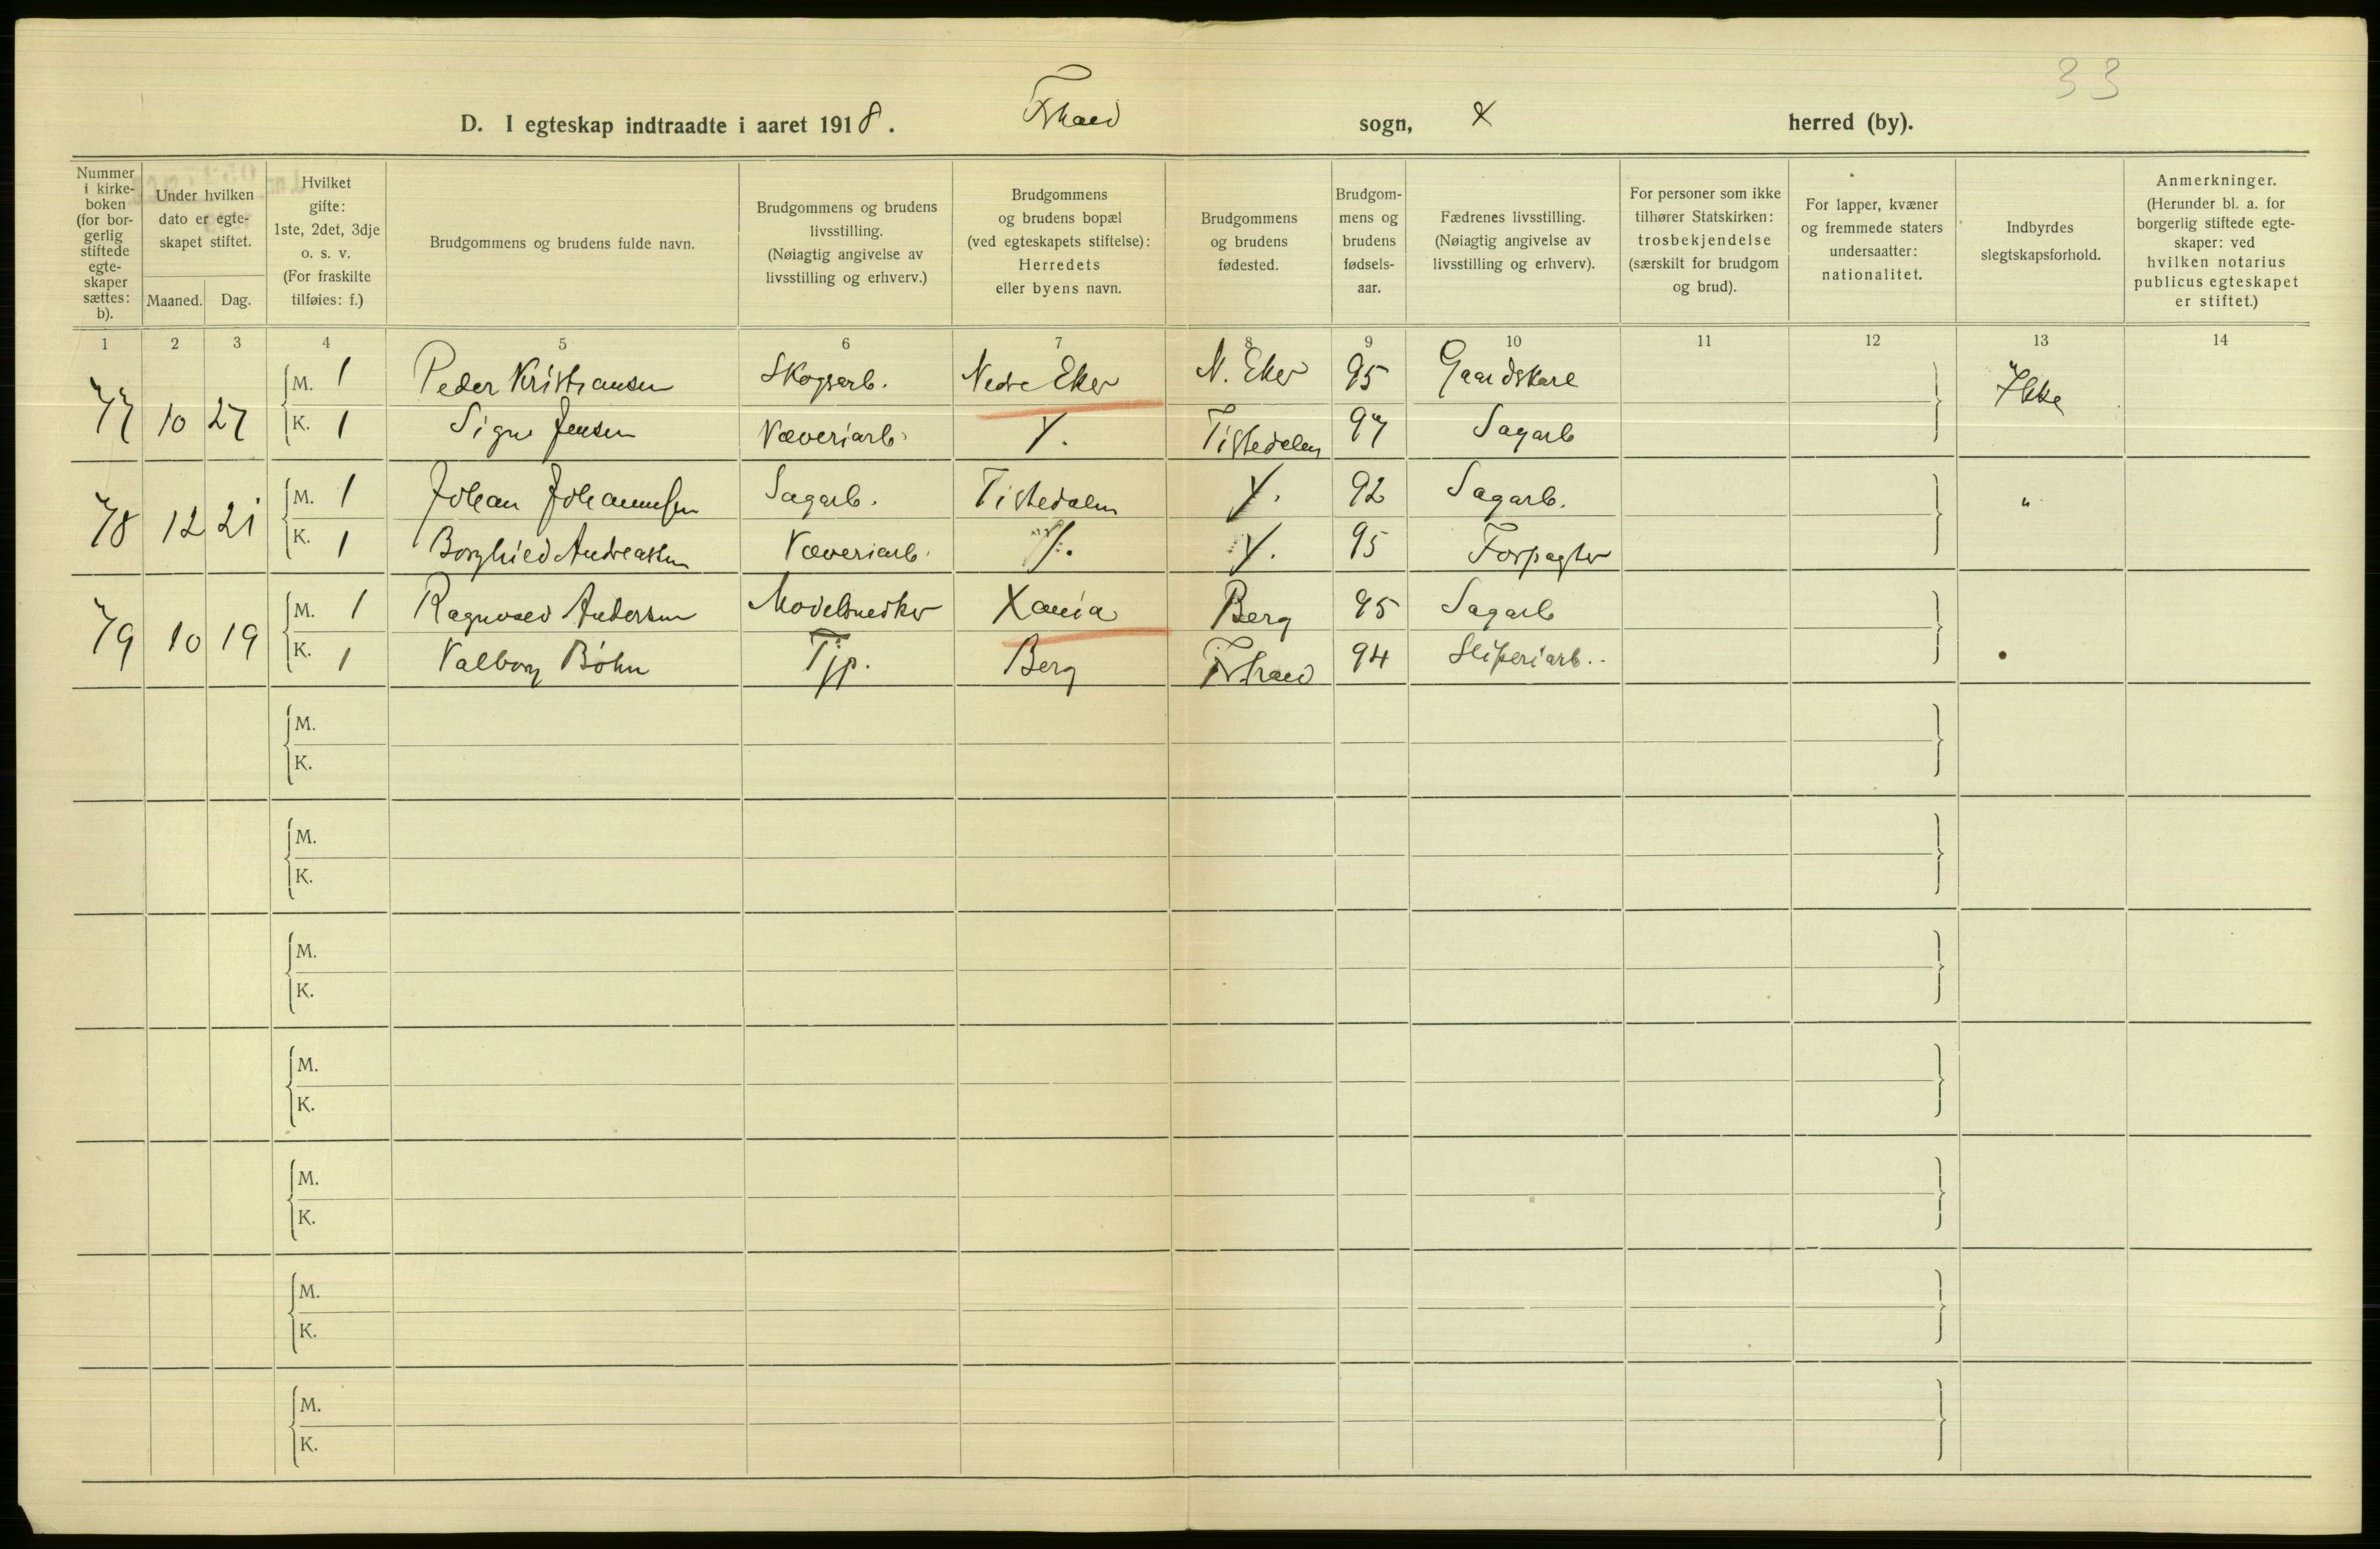 33
D. I egteskap indtraadte i aaret 1918. Frhald sogn, X herred (by).
Nummer i kirkeboken (for borgerlig stiftede egteskaper sættes: b).
Under hvilken dato er egteskapet stiftet.
Maaned. Dag.
Hvilket gifte: 1ste, 2det, 3dje o. s. v. (For fraskilte tilføies: f.)
Brudgommens og brudens fulde navn.
Brudgommens og brudens livsstilling. (Nøiagtig angivelse av livsstilling og erhverv.)
Brudgommens og brudens bopæl (ved egteskapets stiftelse): Herredets eller byens navn.
Brudgommens og brudens fødested.
Brudgommens og brudens fødselsaar.
Fædrenes livsstilling. (Nøiagtig angivelse av livsstilling og erhverv).
For personer som ikke tilhører Statskirken: trosbekjendelse (særskilt for brudgom og brud).
For lapper, kvæner og fremmede staters undersaatter: nationalitet.
Indbyrdes slegtskapsforhold.
Anmerkninger. (Herunder bl. a. for borgerlig stiftede egteskaper: ved hvilken notarius publicus egteskapet er stiftet.)
1 2 3 4 5 6 7 8 9 10 11 12 13 14
77 10 27 M. 1 Peder Kristiansen Skogsarb. Nedre Eker N. Eker 95 Gaardskarl Ikke
K. 1 Signe Jensen Væveriarb. Y. Tistedalen 97 Sagarb
78 12 21 M. 1 Johan Johannesen Sagarb. Tistedalen Y. 92 Sagarb. "
K. 1 Borghild Andreassen Væveriarb. Y. Y. 95 Forpagter
79 10 19 M. 1 Ragnvald Andersen Modelsnedker Xania Berg 95 Sagarb
K. 1 Valborg Bøhn Tjp. Berg Frhald 94 Sliperiarb.
M.
K.
M.
K.
M.
K.
M.
K.
M.
K.
M.
K.
M.
K.